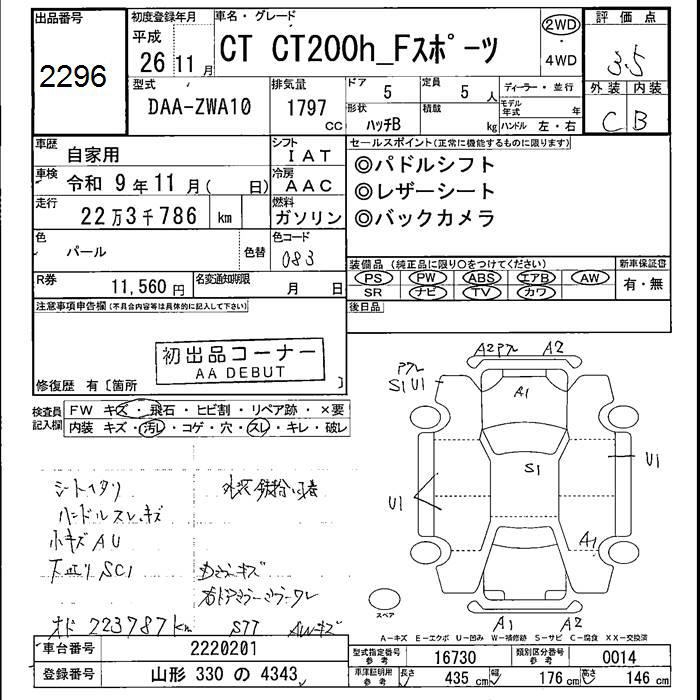 出品番号
2296
初度登録年月
平成
26 年 11 月
車名・グレード
CT CT200h_Fスポーツ
2WD
・
4WD
評価点
3.5
外装 内装
C B
型式
DAA-ZWA10
排気量
1797
cc
ドア
5
形状
ハッチB
定員
5 人
積載
kg
ディーラー・並行
モデル年式 年
ハンドル 左・右
車歴
自家用
シフト
IAT
車検
令和 9年11月( 日)
冷房
AAC
走行
22万3千786 km
燃料
ガソリン
色
パール
色替
色コード
083
R券
11,560 円
名変通知期限
月 日
セールスポイント(正常に機能するものに限ります)
◎パドルシフト
◎レザーシート
◎バックカメラ
装備品(純正品に限り○をつけてください)
PS PW ABS エアB AW
SR ナビ TV カワ
新車保証書
有・無
後日品
注意事項申告欄(不具合内容等は具体的に記入して下さい)
初出品コーナー
AA DEBUT
修復歴 有〔箇所 〕
検査員
記入欄
FW キズ・飛石・ヒビ割・リペア跡・×要
内装 キズ・汚レ・コゲ・穴・スレ・キレ・破レ
シートヘタリ
ハンドルスレ.キズ
小キズAU
下廻りSC1
オド 223787km
STT
AWキズ
A2 アル A2
アル
S1 U1
A1
S1
U1
U1
A1
A1
A2
スペア
A-キズ E-エクボ U-凹み W-補修跡 S-サビ C-腐食 XX-交換済
車台番号
2220201
登録番号
山形 330 の 4343
型式指定番号
参考
16730
類別区分番号
参考
0014
車庫証明用
参考
長さ 435 cm
幅 176 cm
高さ 146 cm